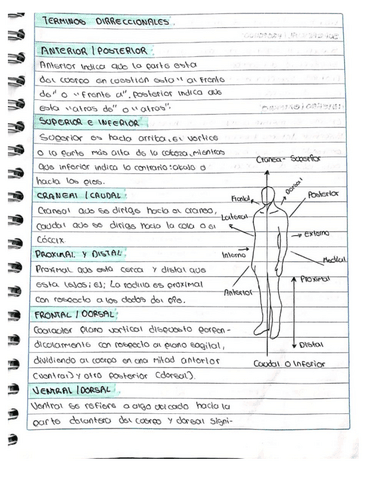 TERMINOS DIRRECCIONALES.
ANTERIOR / POSTERIOR:
Anterior indica que la parte esta
del cuerpo en cuestión esta "al frente
de" o "frente a", Posterior indica que
esta "atras de" o "atras".
SUPERIOR E INFERIOR:
Superior es hacia arriba, el vertice
o la parte más alta de la cabeza, mientras
que inferior indica lo contrario: abajo o
hacia los pies.
CRANEAL / CAUDAL:
Craneal que se dirige hacia el craneo,
caudal que se dirige hacia la cola o el
cóccix.
PROXIMAL Y DISTAL:
Proximal que esta cerca y distal que
esta lejos; ej: La rodilla es proximal
con respecto a los dedos del pie.
FRONTAL / DORSAL:
Contacter plano vertical dispuesto perpen-
dicularmente con respecto al plano sagital,
dividiendo al cuerpo en una mitad anterior
(ventral) y otra posterior (dorsal).
VENTRAL / DORSAL:
Ventral se refiere a algo ubicado hacia la
parte delantera del cuerpo y dorsal signi-
Craneal - Superior
Frontal
Dorsal
Posterior
Lateral
Externo
Interno
Medical
Anterior
Proximal
Distal
Caudal o Inferior